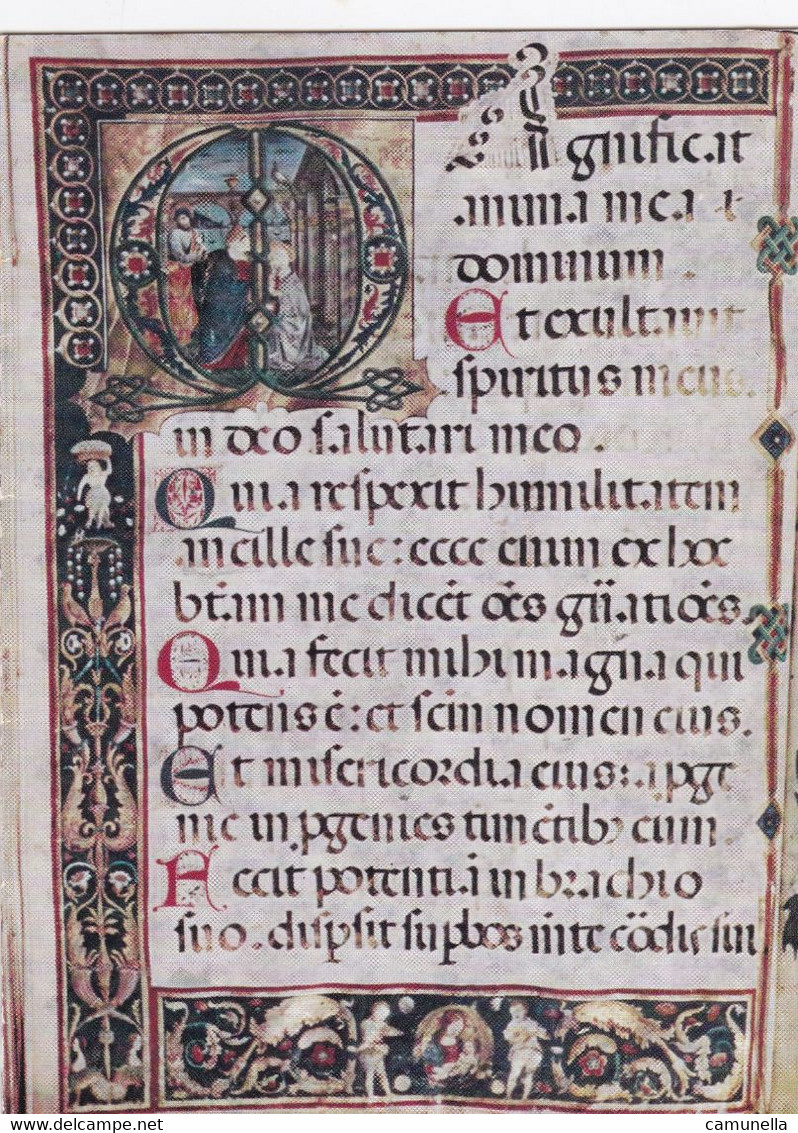 Magnificat
anima mea
dominum.
Et exultavit
spiritus meus.
in deo salutari meo.
Quia respexit humilitatem
ancille sue: ecce enim ex hoc
btam me dicēt oēs gn̄atiōes.
Quia fecit mihi magna qui
potens ē: et scm̄ nomen eius.
Et misericordia eius: a pge
nie in pgenies timētibꝰ eum.
Fecit potentiā in brachio
suo. dispsit supbos mēte cōdis sui
www.delcampe.net
camunella